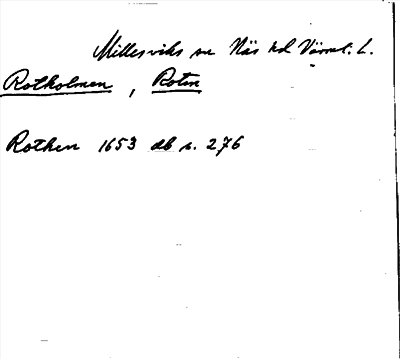 Millesviks sn Näs hd Värml. L.
Rotholmen, Roten
Rothen 1653 db s. 276